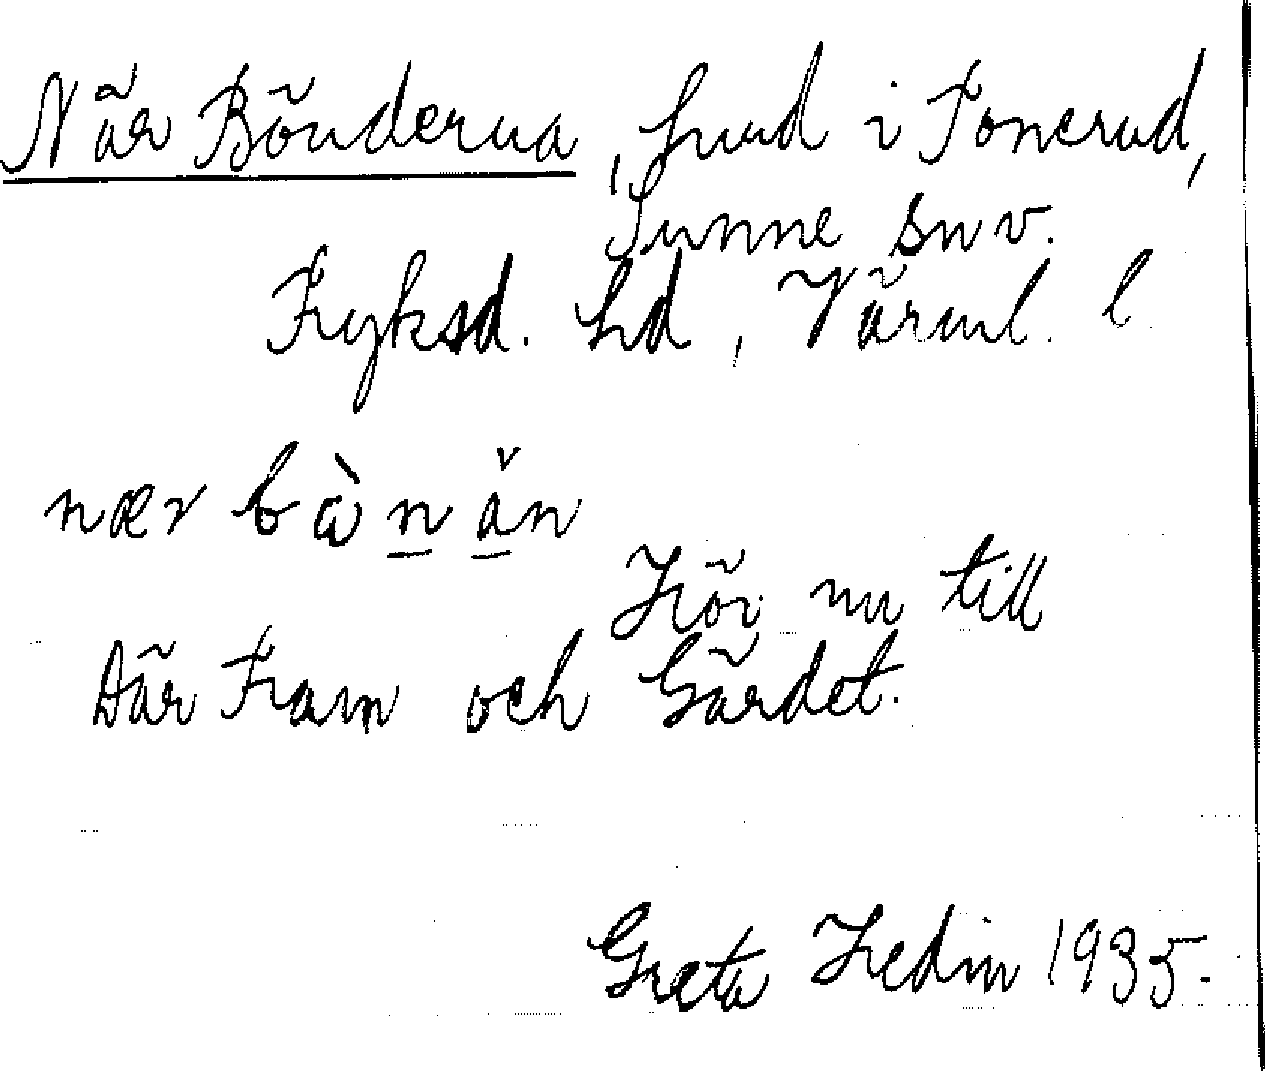 När Bönderna, hmd i Tonerud,
Sunne snv.
Fryksd. hd, Värml. l.
nær bànăn
Hör nu till
Där Fram och Gärdet.
Greta Hedin 1935.